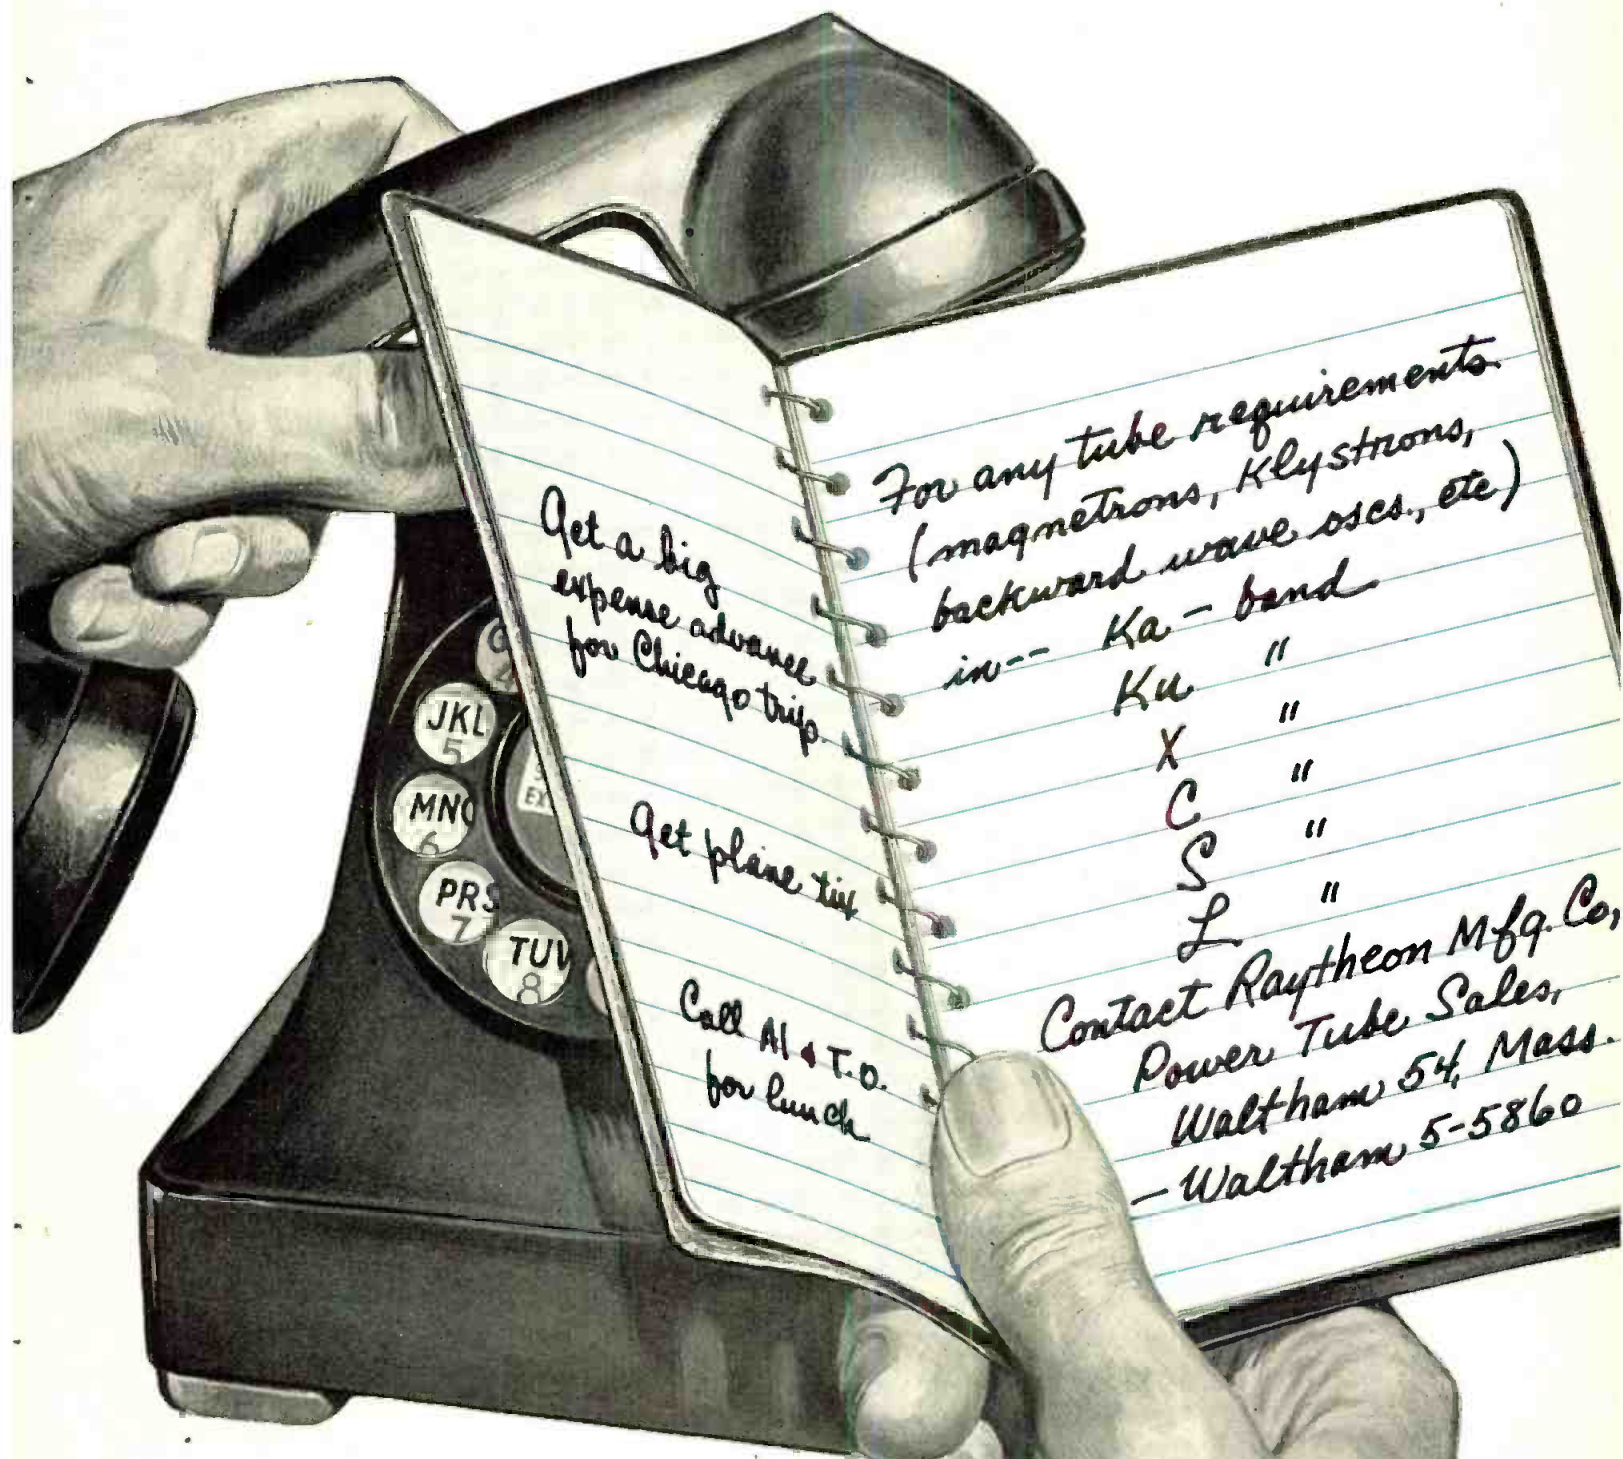 Get a big
expense advance
for Chicago trip.
Get plane tix
Call Al & T.O.
for lunch
For any tube requirements
(magnetrons, Klystrons,
backward wave oscs., etc)
in-- Ka - band
Ku "
X "
C "
S "
L "
Contact Raytheon Mfg. Co,
Power Tube Sales,
Waltham 54, Mass.
- Waltham 5-5860
4
JKL
5
MNO
6
PRS
7
TUV
8
EX